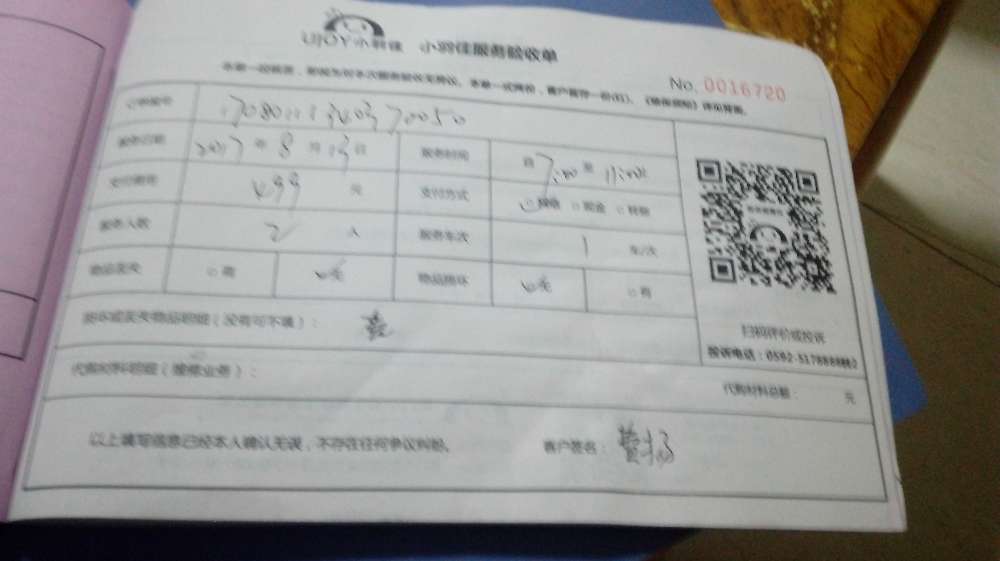 UJOY小羽佳 小羽佳服务验收单
No. 0016720
订单编号
服务日期 2017年8月13日 服务时间 自7:00至11:00止
支付费用 499元 支付方式 现金 转账
服务人数 2人 服务车次 1车/次
物品丢失 有 无 物品损坏 无 有
损坏或丢失物品明细(没有可不填): 无
扫码评价或投诉
投诉电话:0592-5178888转2
代购材料明细(维修业务): 代购材料总额: 元
以上填写信息已经本人确认无误,不存在任何争议纠纷。 客户签名: